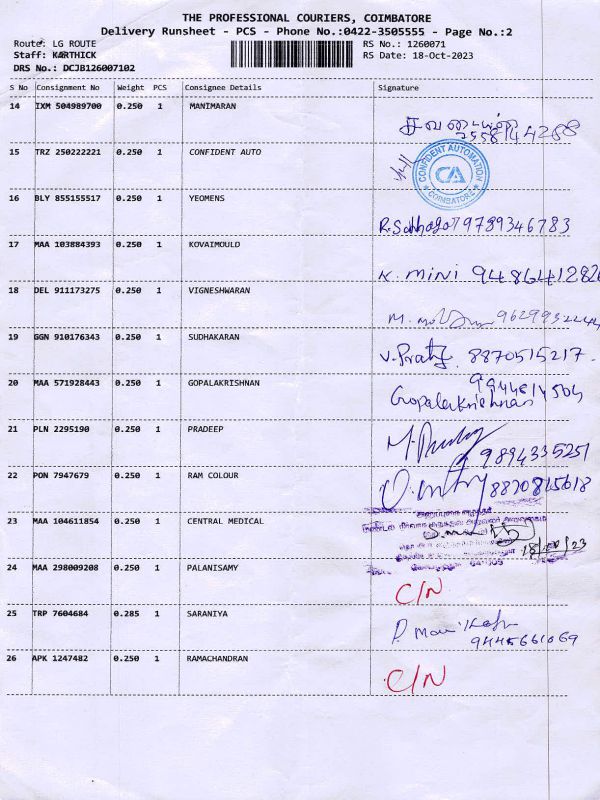 THE PROFESSIONAL COURIERS, COIMBATORE
Delivery Runsheet - PCS - Phone No.:0422-3505555 - Page No.:2
Route: LG ROUTE RS No.: 1260071
Staff: KARTHICK RS Date: 18-Oct-2023
DRS No.: DCJB126007102
S No Consignment No Weight PCS Consignee Details Signature
14 IXM 504989700 0.250 1 MANIMARAN
15 TRZ 250222221 0.250 1 CONFIDENT AUTO
CONFIDENT AUTOMATION
CA
COIMBATORE
16 BLY 855155517 0.250 1 YEOMENS
9789346783
17 MAA 103884393 0.250 1 KOVAIMOULD
K. mini 9486412820
18 DEL 911173275 0.250 1 VIGNESHWARAN
19 GGN 910176343 0.250 1 SUDHAKARAN
8870515217.
20 MAA 571928443 0.250 1 GOPALAKRISHNAN
Gopalakrishnan
21 PLN 2295190 0.250 1 PRADEEP
9894335251
22 PON 7947679 0.250 1 RAM COLOUR
23 MAA 104611854 0.250 1 CENTRAL MEDICAL
24 MAA 298009208 0.250 1 PALANISAMY
C/N
25 TRP 7604684 0.285 1 SARANIYA
9445661069
26 APK 1247482 0.250 1 RAMACHANDRAN
C/N